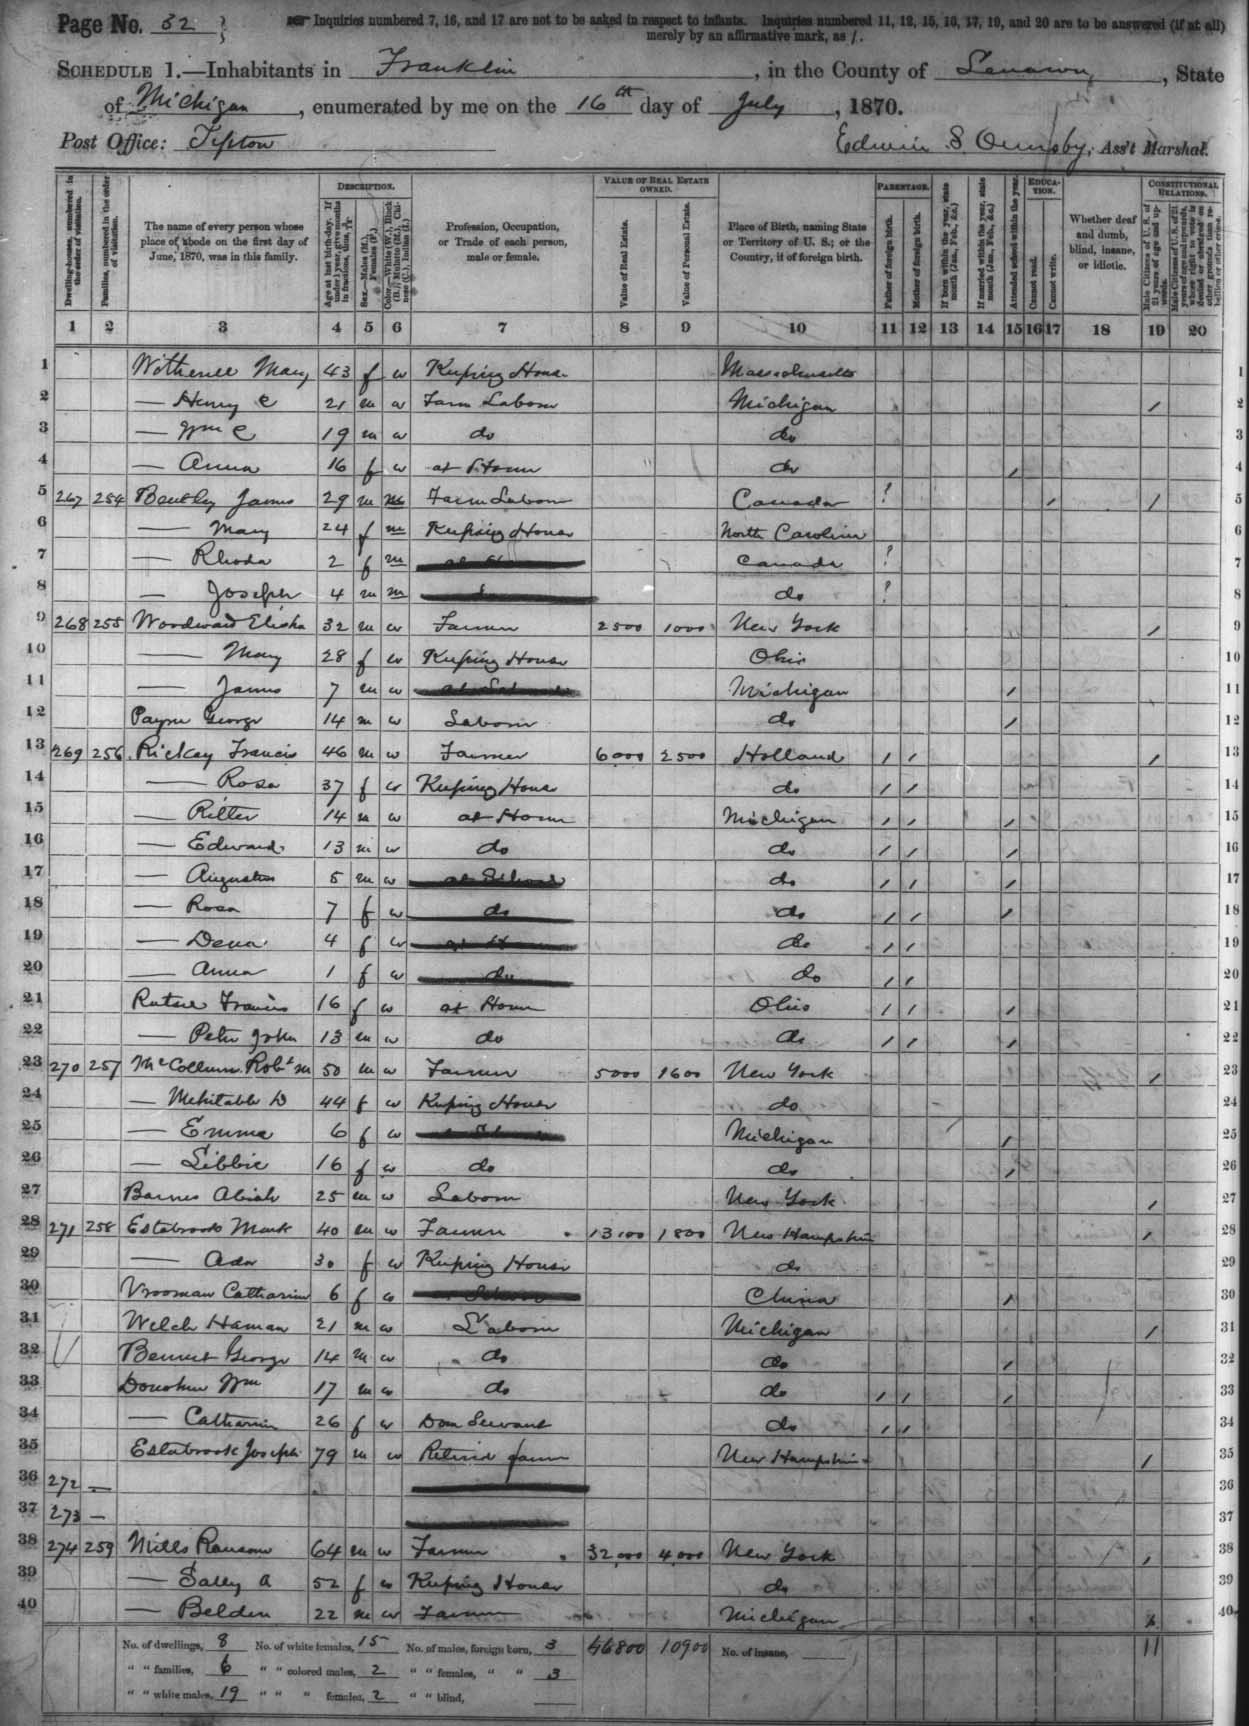 Page No. 32
Inquiries numbered 7, 16, and 17 are not to be asked in respect to infants. Inquiries numbered 11, 12, 15, 16, 17, 19, and 20 are to be answered (if at all)
merely by an affirmative mark, as /.
SCHEDULE 1.—Inhabitants in Franklin, in the County of Lenawee, State
of Michigan, enumerated by me on the 16th day of July, 1870.
Post Office: Tipton
Edwin S Ormsby, Ass't Marshal.
Dwelling-houses, numbered in the order of visitation.
Families, numbered in the order of visitation.
The name of every person whose place of abode on the first day of June, 1870, was in this family.
DESCRIPTION.
Age at last birth-day. If under 1 year, give months in fractions, thus, 3/12
Sex.—Males (M.), Females (F.)
Color.—White (W.), Black (B.), Mulatto (M.), Chinese (C.), Indian (I.)
Profession, Occupation, or Trade of each person, male or female.
VALUE OF REAL ESTATE OWNED.
Value of Real Estate.
Value of Personal Estate.
Place of Birth, naming State or Territory of U. S.; or the Country, if of foreign birth.
PARENTAGE.
Father of foreign birth.
Mother of foreign birth.
If born within the year, state month (Jan., Feb., &c.)
If married within the year, state month (Jan., Feb., &c.)
Attended school within the year.
EDUCATION.
Cannot read.
Cannot write.
Whether deaf and dumb, blind, insane, or idiotic.
CONSTITUTIONAL RELATIONS.
Male Citizens of U. S. of 21 years of age and upwards.
Male Citizens of U. S. of 21 years of age and upwards, whose right to vote is denied or abridged on other grounds than rebellion or other crime.
1 2 3 4 5 6 7 8 9 10 11 12 13 14 15 16 17 18 19 20
1 Mary 43 f w Keeping House Massachusetts 1
2 — Henry C 21 m w Farm Laborer Michigan / 2
3 — Wm C 19 m w do do 3
4 — Anna 16 f w at Home do / 4
5 267 254 Bentley James 29 m m Farm Laborer Canada ? / / 5
6 — Mary 24 f m Keeping House North Carolina 6
7 — Rhoda 2 f m Canada ? 7
8 — Joseph 4 m m do ? 8
9 268 255 Woodward Elisha 32 m w Farmer 2500 1000 New York / 9
10 — Mary 28 f w Keeping House Ohio 10
11 — James 7 m w Michigan / 11
12 Payne George 14 m w Laborer do / 12
13 269 256 Rickey Francis 46 m w Farmer 6000 2500 Holland / / / 13
14 — Rosa 37 f w Keeping House do / / 14
15 — Ritter 14 m w at Home Michigan / / / 15
16 — Edward 13 m w do do / / / 16
17 — Augustus 5 m w at School do / / / 17
18 — Rosa 7 f w do do / / / 18
19 — Dena 4 f w at H do / / 19
20 — Anna 1 f w do do / / 20
21 Francis 16 f w at Home Ohio / / / 21
22 — Peter John 13 m w do do / / / 22
23 270 257 McCollum Robt m 50 m w Farmer 5000 1600 New York / 23
24 — Mehitable D 44 f w Keeping House do 24
25 — Emma 6 f w Michigan / 25
26 — Libbie 16 f w do do / 26
27 Barnes Abiah 25 m w Laborer New York / 27
28 271 258 Estabrook Mark 40 m w Farmer 13100 1800 New Hampshire / 28
29 — Ada 30 f w Keeping House do 29
30 Vrooman Catharine 6 f w at School China / 30
31 Welch Haman 21 m w Laborer Michigan / 31
32 Bennet George 14 m w do do / 32
33 Donohue Wm 17 m w do do / / / 33
34 — Catharine 26 f w Dom Servant do / / 34
35 Estabrook Joseph 79 m w Retired farmer New Hampshire / 35
36 272 — 36
37 273 — 37
38 274 259 Mills Ransom 64 m w Farmer 32,000 4,000 New York / 38
39 — Sally A 52 f w Keeping House do 39
40 — Belden 22 m w Farmer Michigan / 40
No. of dwellings, 8 No. of white females, 15 No. of males, foreign born, 3 46800 10900 No. of insane, 11
" " families, 6 " " colored males, 2 " " females, " " 3
" " white males, 19 " " " females, 2 " " blind,